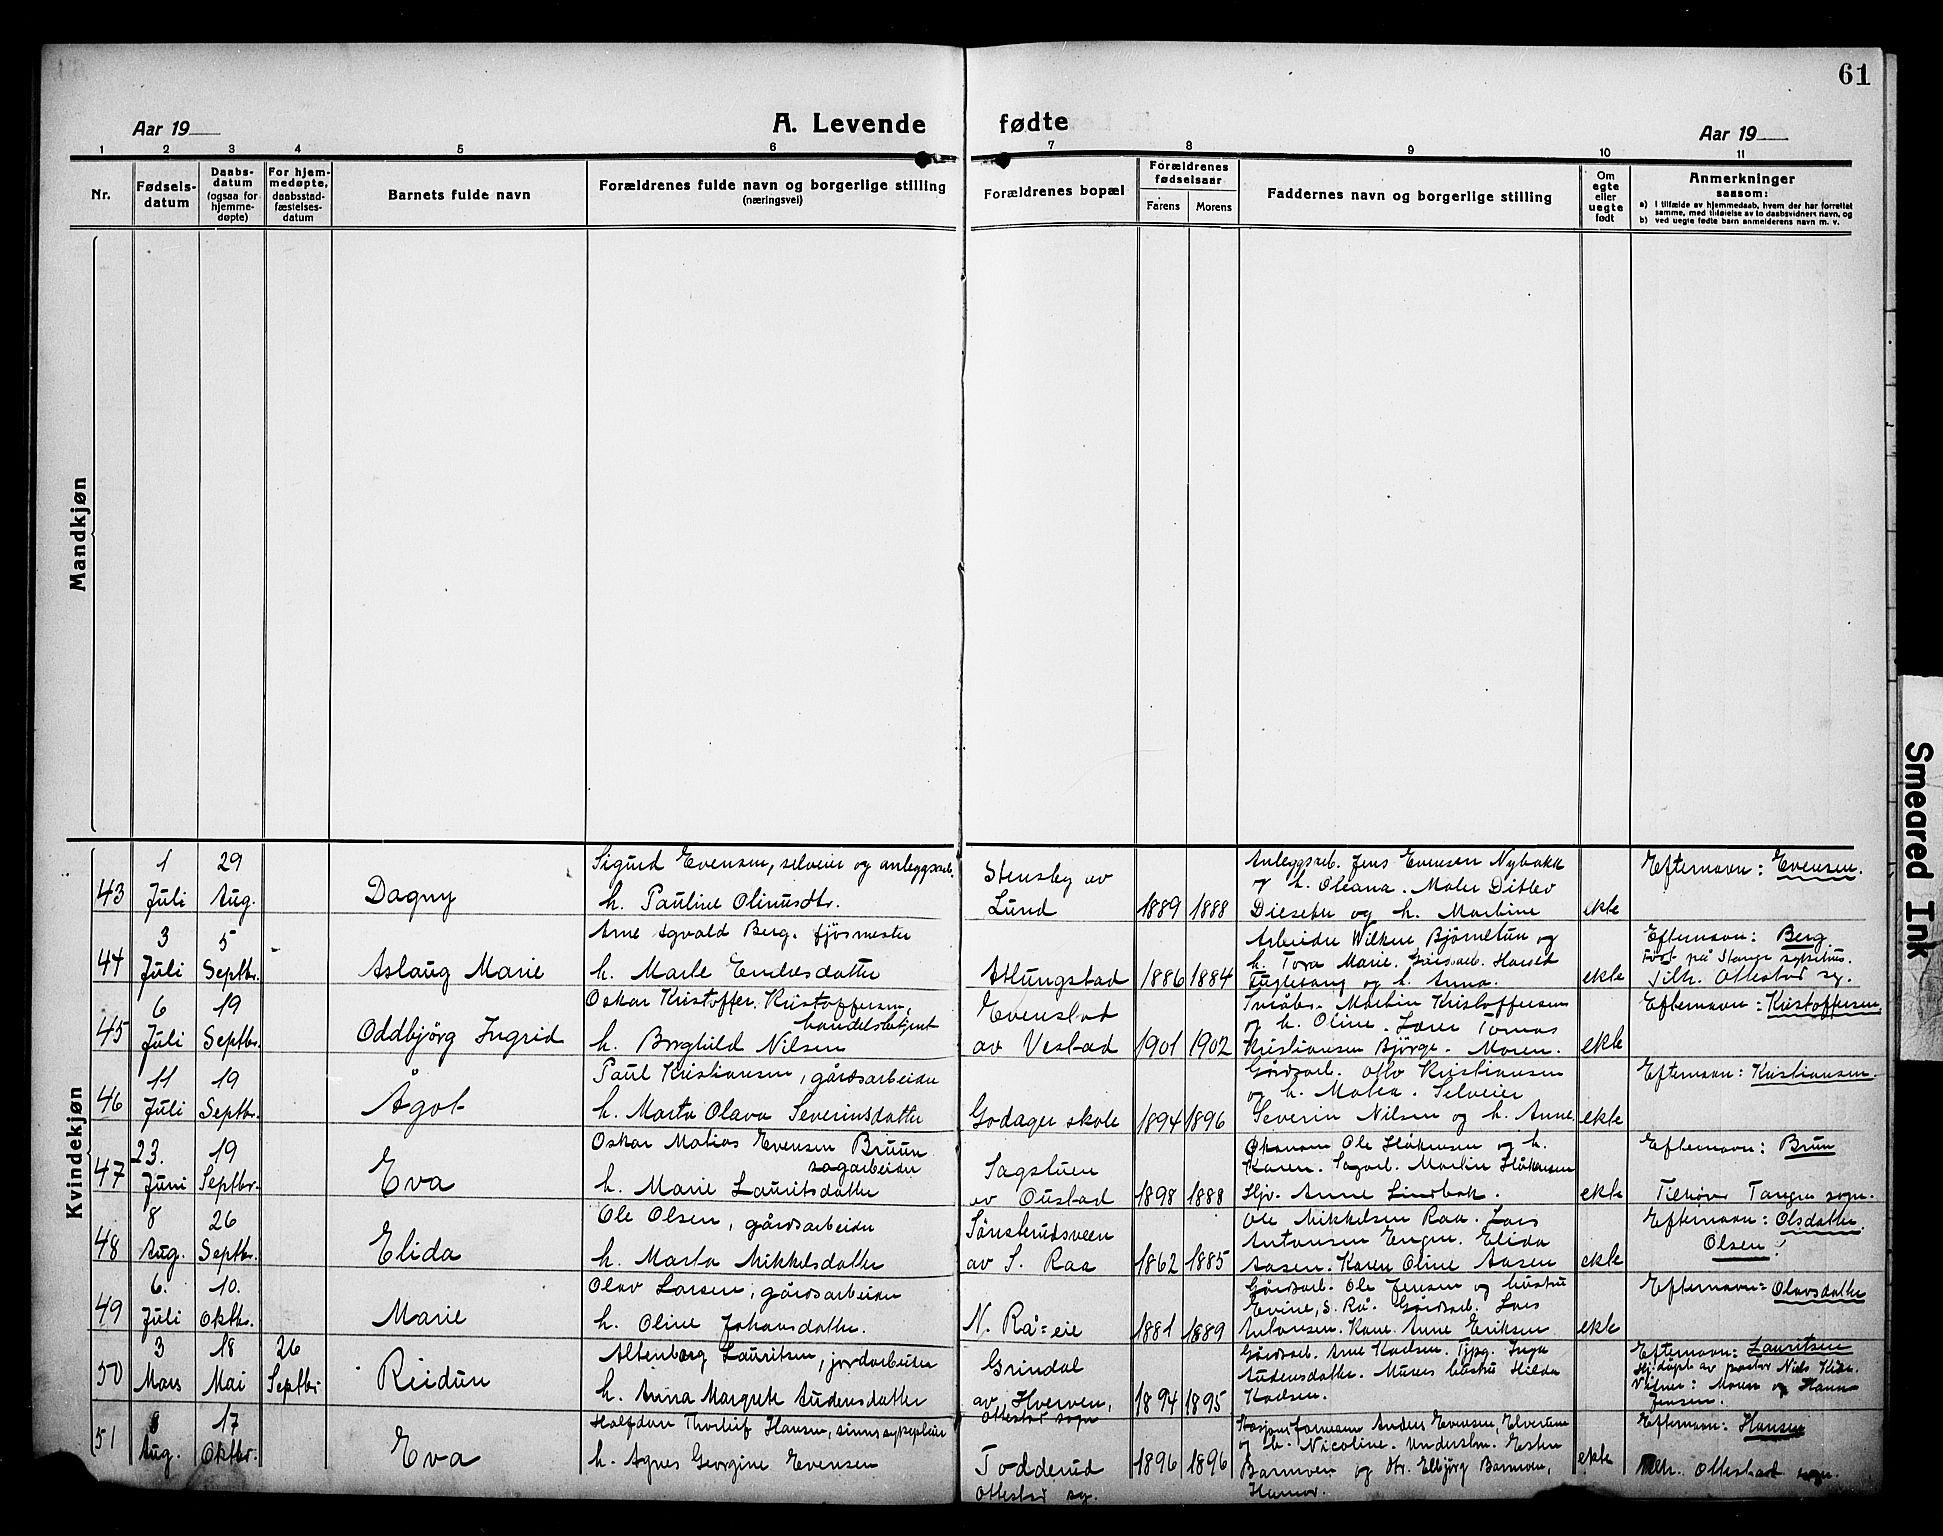 61
Aar 19
A. Levende fødte
Aar 19
1 2 3 4 5 6 7 8 9 10 11
Nr.
Fødsels-
datum
Daabs-
datum
(ogsaa for
hjemme-
døpte)
For hjem-
medøpte,
daabsstad-
fæstelses-
datum
Barnets fulde navn
Forældrenes fulde navn og borgerlige stilling
(næringsvei)
Forældrenes bopæl
Forældrenes
fødselsaar
Farens
Morens
Faddernes navn og borgerlige stilling
Om
egte
eller
uegte
født
Anmerkninger
saasom:
a) I tilfælde av hjemmedaab, hvem der har forrettet
samme, med tilføielse av to daabsvidners navn, og
b) ved uegte fødte barn anmelderens navn m. v.
Mandkjøn
Kvindekjøn
43
1
Juli
29
Aug.
Dagny
Sigurd Evensen, selveier og anleggsarb.
h. Pauline Olinusdtr.
Stensby av
Lund
1889
1888
Anleggsarb. Jens Evensen Nybakk
og h. Oleana. Maler Ditlev
Dieseth og h. Martine
ekte
Efternavn: Evensen.
44
3
Juli
5
Septbr.
Aslaug Marie
Arne Agvald Berg. fjøsmester
h. Marte Endresdatter
Atlungstad
1886
1884
Arbeider Wilhem Bjørnetun og
h. Tora Marie. Gårdsarb. Harald
Fuglesang og h. Anna.
ekte
Efternavn: Berg.
Født på Stange sykehus.
Tilh. Ottestad sg.
45
6
Juli
19
Septbr.
Oddbjörg Ingrid
Oskar Kristoffer Kristoffersen,
handelsbetjent
h. Borghild Nilsen
Evenstad
av Vestad
1901
1902
Småbr. Martin Kristoffersen
og h. Oline. Lærer Tomas
Kristiansen Bjørge. Moren.
ekte
Efternavn: Kristoffersen
46
11
Juli
19
Septbr.
Ågot
Paul Kristiansen, gårdsarbeider
h. Marta Olava Severinsdatter
Godager skole
1894
1896
Gårdsarb. Otto Kristiansen
og h. Matea. Selveier
Severin Nilsen og h. Anne
ekte
Efternavn: Kristiansen.
47
23.
Juni
19
Septbr.
Eva
Oskar Matias Evensen Bruun
sagarbeider
h. Marie Lauritsdatter
Sagstuen
av Oustad
1898
1888
Ole Håkensen og h.
Karen. Sagarb. Martin Håkensen
Hjv. Anne Lindbak.
ekte
Efternavn: Brun
Tilhører Tangen sogn.
48
8
Aug.
26
Septbr.
Elida
Ole Olsen, gårdsarbeider
h. Marta Mikkelsdatter
Sønsterudsveen
av S. Raa
1862
1885
Ole Mikkelsen Raa. Lars
Antonsen Engen. Elida
Aasen. Karen Oline Aasen
ekte
Efternavn: Olsdatter.
Olsen!
49
6.
Juli
10.
Oktbr.
Marie
Olav Larsen, gårdsarbeider
h. Oline Johansdatter.
N. Rå-eie
1881
1889
Gårdsarb. Ole Jensen og hustru
Evine, S. Rå. Gårdsarb. Lars
Antonsen. Kone Anne Eriksen
ekte
Efternavn: Olavsdatter
50
3
Mars
18
Mai
26
Septbr
Reidun
Altenborg Lauritsen, jordarbeider
h. Anna Margrete Audensdatter
Grindal
av, Hverven,
Ottestad sogn
1894
1895
Gårdsarb. Arne Karlsen. Tjpg. Inga
Audensdatter. Murers hustru Hilda
Karlsen.
Efternavn: Lauritsen
Hj.døpt av pastor Niels
Vidner: Moren og Hanna
Jensen.
51
8
Aug.
17
Oktbr.
Eva
Halfdan Thorleif Hansen, sinnssykepleier
h. Agnes Georgine Evensen
Todderud
Ottestad sg.
1896
1896
Anders Evensen, Elverum
og h. Nicoline. Esten
Barmoen og dtr. Ellbjörg Barmoen,
Hamar.
ekte
Efternavn: Hansen
Tilh. Ottestad sogn.
Smeared Ink